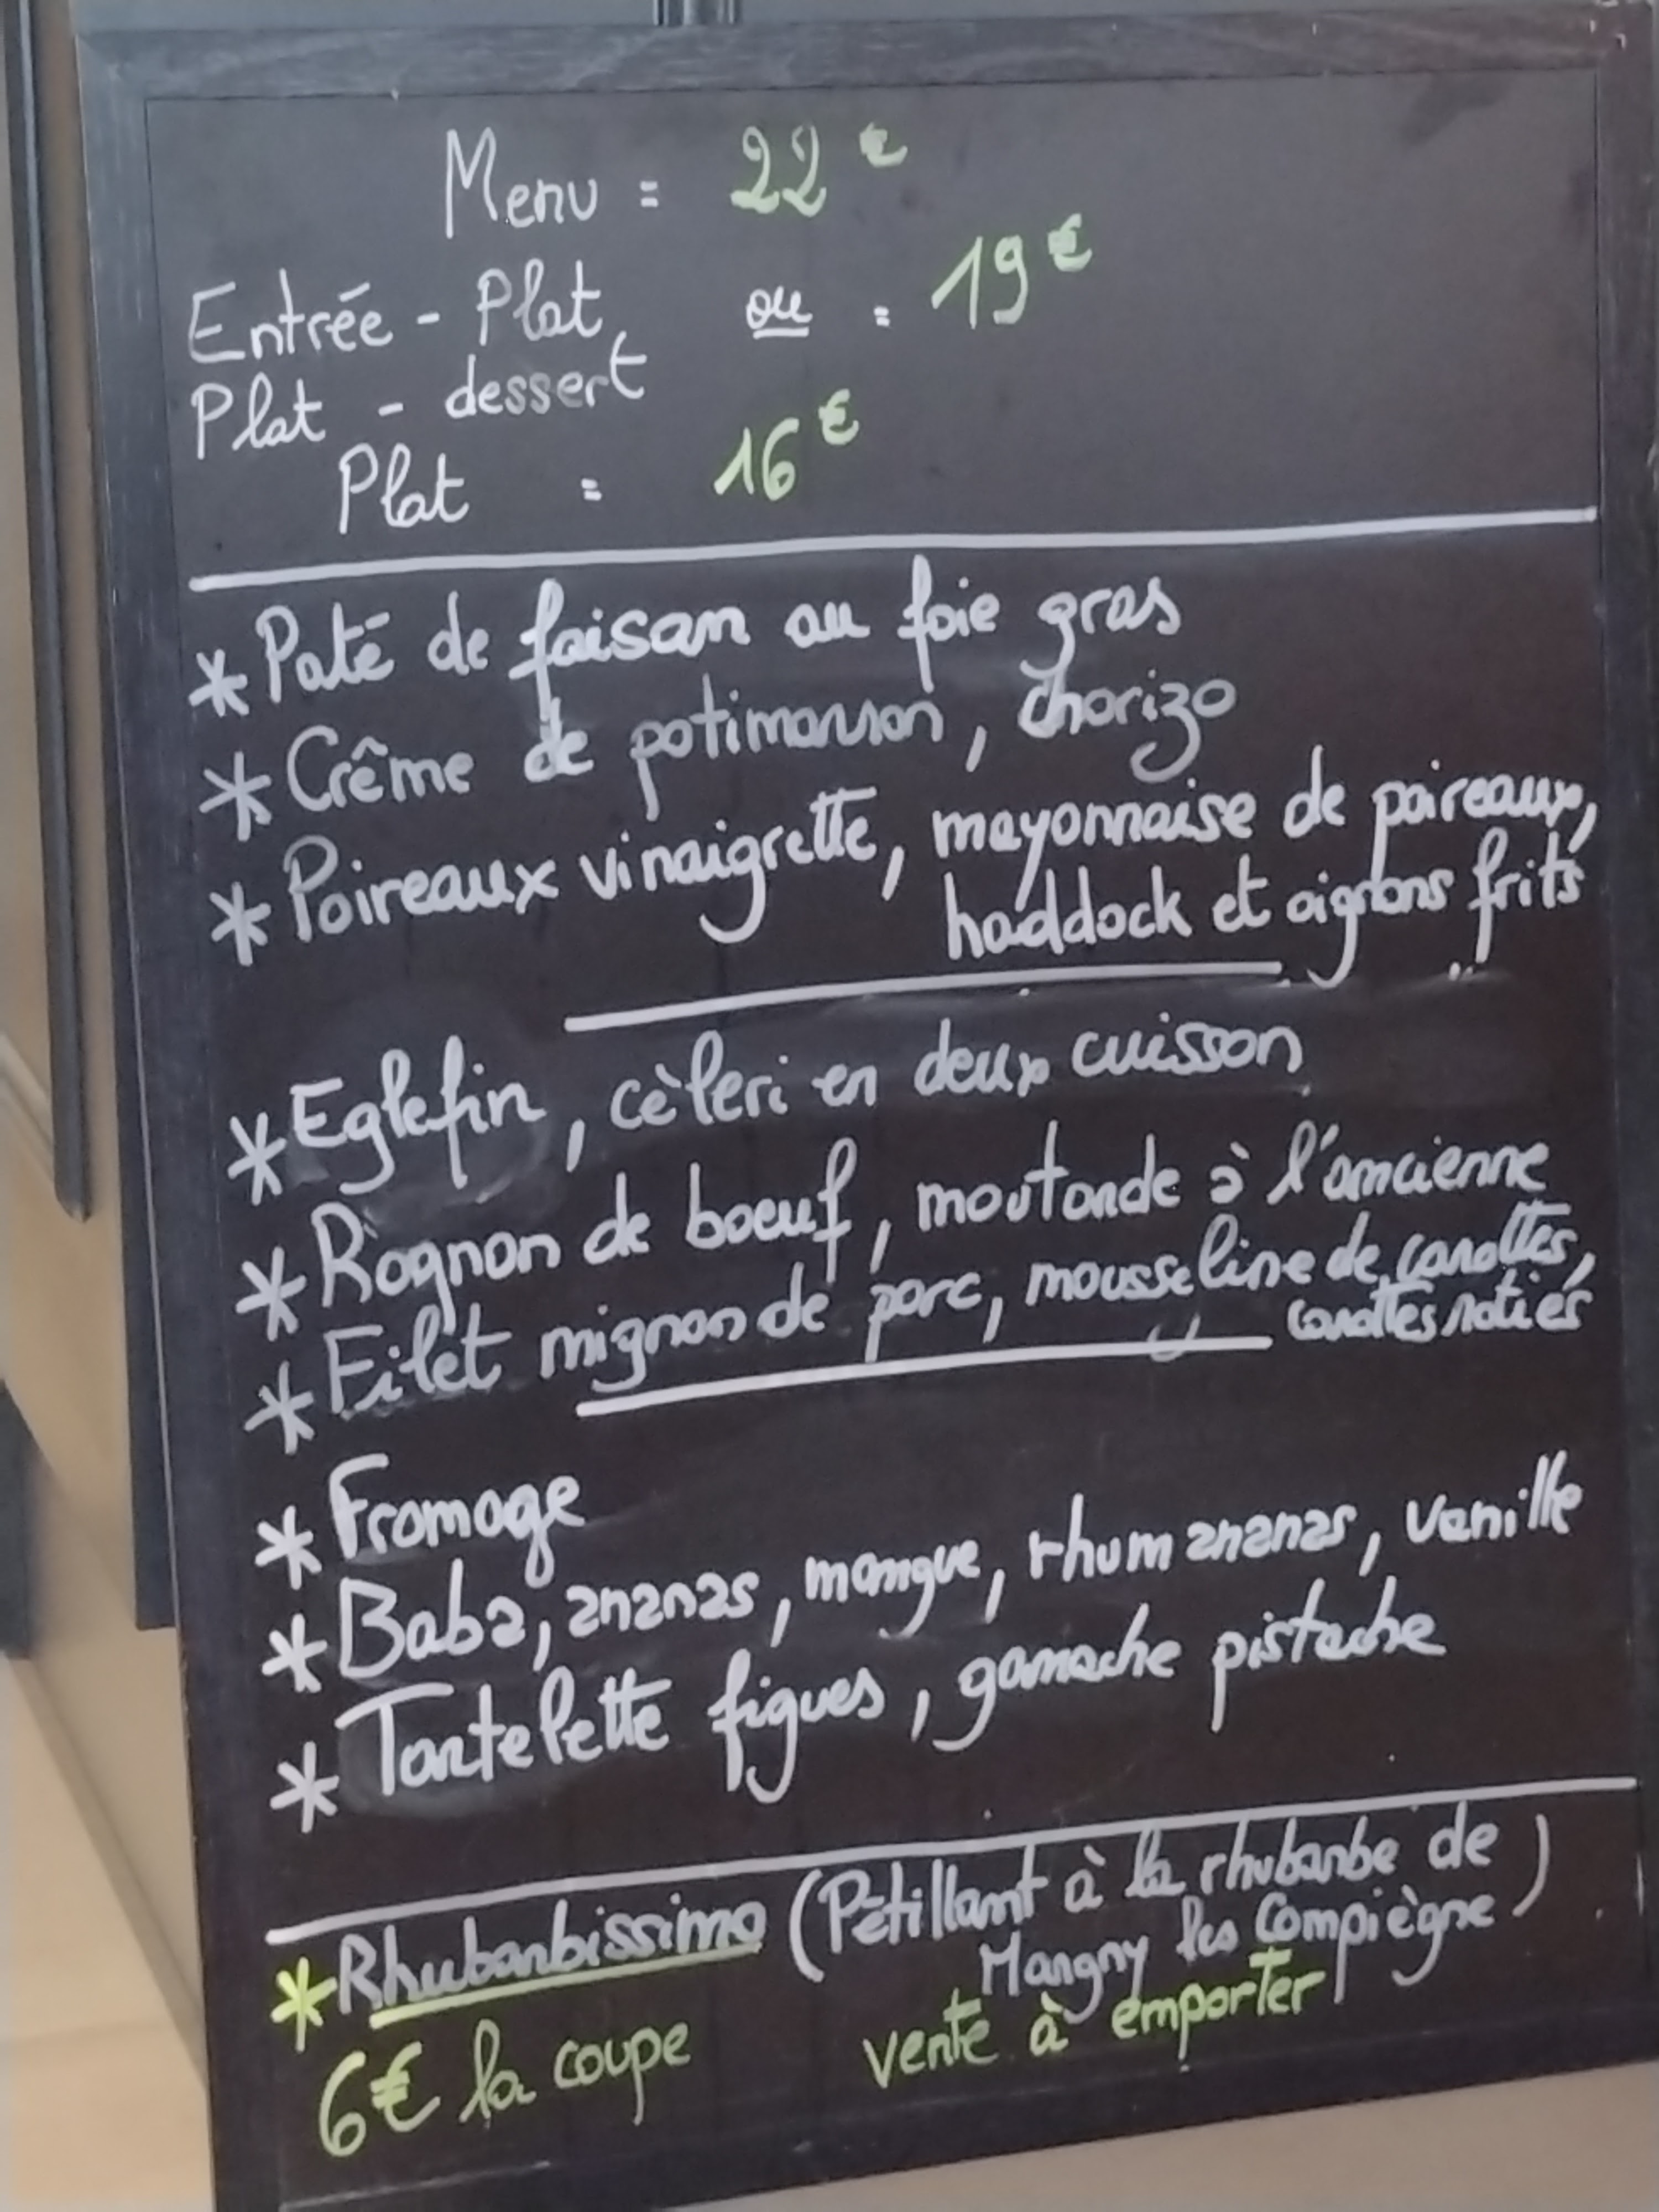 Menu = 22€
Entrée - Plat ou = 19€
Plat - dessert
Plat = 16€
* Paté de faisan au foie gras
* Crême de potimarron, chorizo
* Poireaux vinaigrette, mayonnaise de poireaux,
haddock et oignons frits
* Eglefin, cèleri en deux cuisson
* Rognon de boeuf, moutarde à l'ancienne
* Filet mignon de porc, mousseline de carottes,
carottes roties
* Fromage
* Baba, ananas, mangue, rhum ananas, vanille
* Tartelette figues, ganache pistache
* Rhubarbissimo (Pétillant à la rhubarbe de
Margny les Compiègne)
6€ la coupe vente à emporter